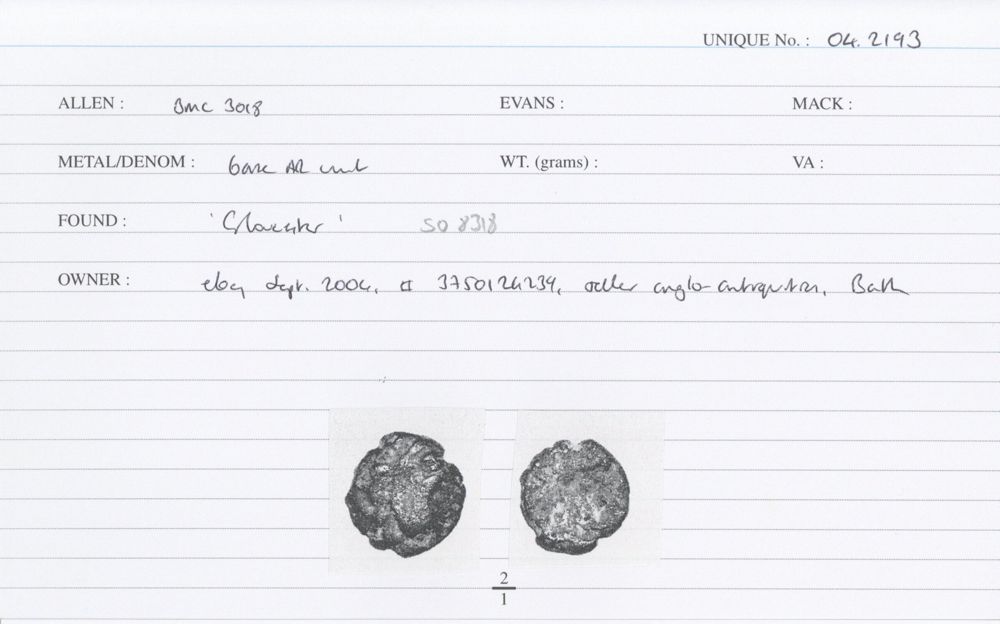 UNIQUE No. : 04. 2193
ALLEN : BMC 3018 EVANS : MACK :
METAL/DENOM : base AR unit WT. (grams) : VA :
FOUND : 'Gloucester' SO 8318
OWNER : ebay Sept. 2004, 3750124234, seller anglo-antiquities, Bath
2
1